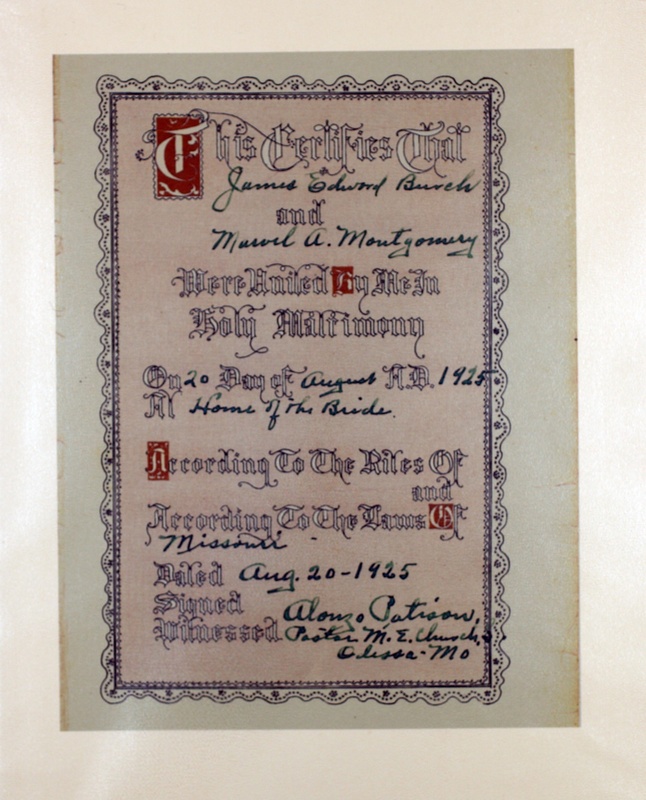 This Certifies That
James Edward Burch
and
Marvel A. Montgomery
Were United By Me In
Holy Matrimony
On 20 Day of August A.D. 1925
At Home of the Bride.
According To The Rites Of
and
According To The Laws Of
Missouri
Dated Aug. 20-1925
Signed Alonzo Patison,
Witnessed Pastor M. E. Church,
Odessa-Mo